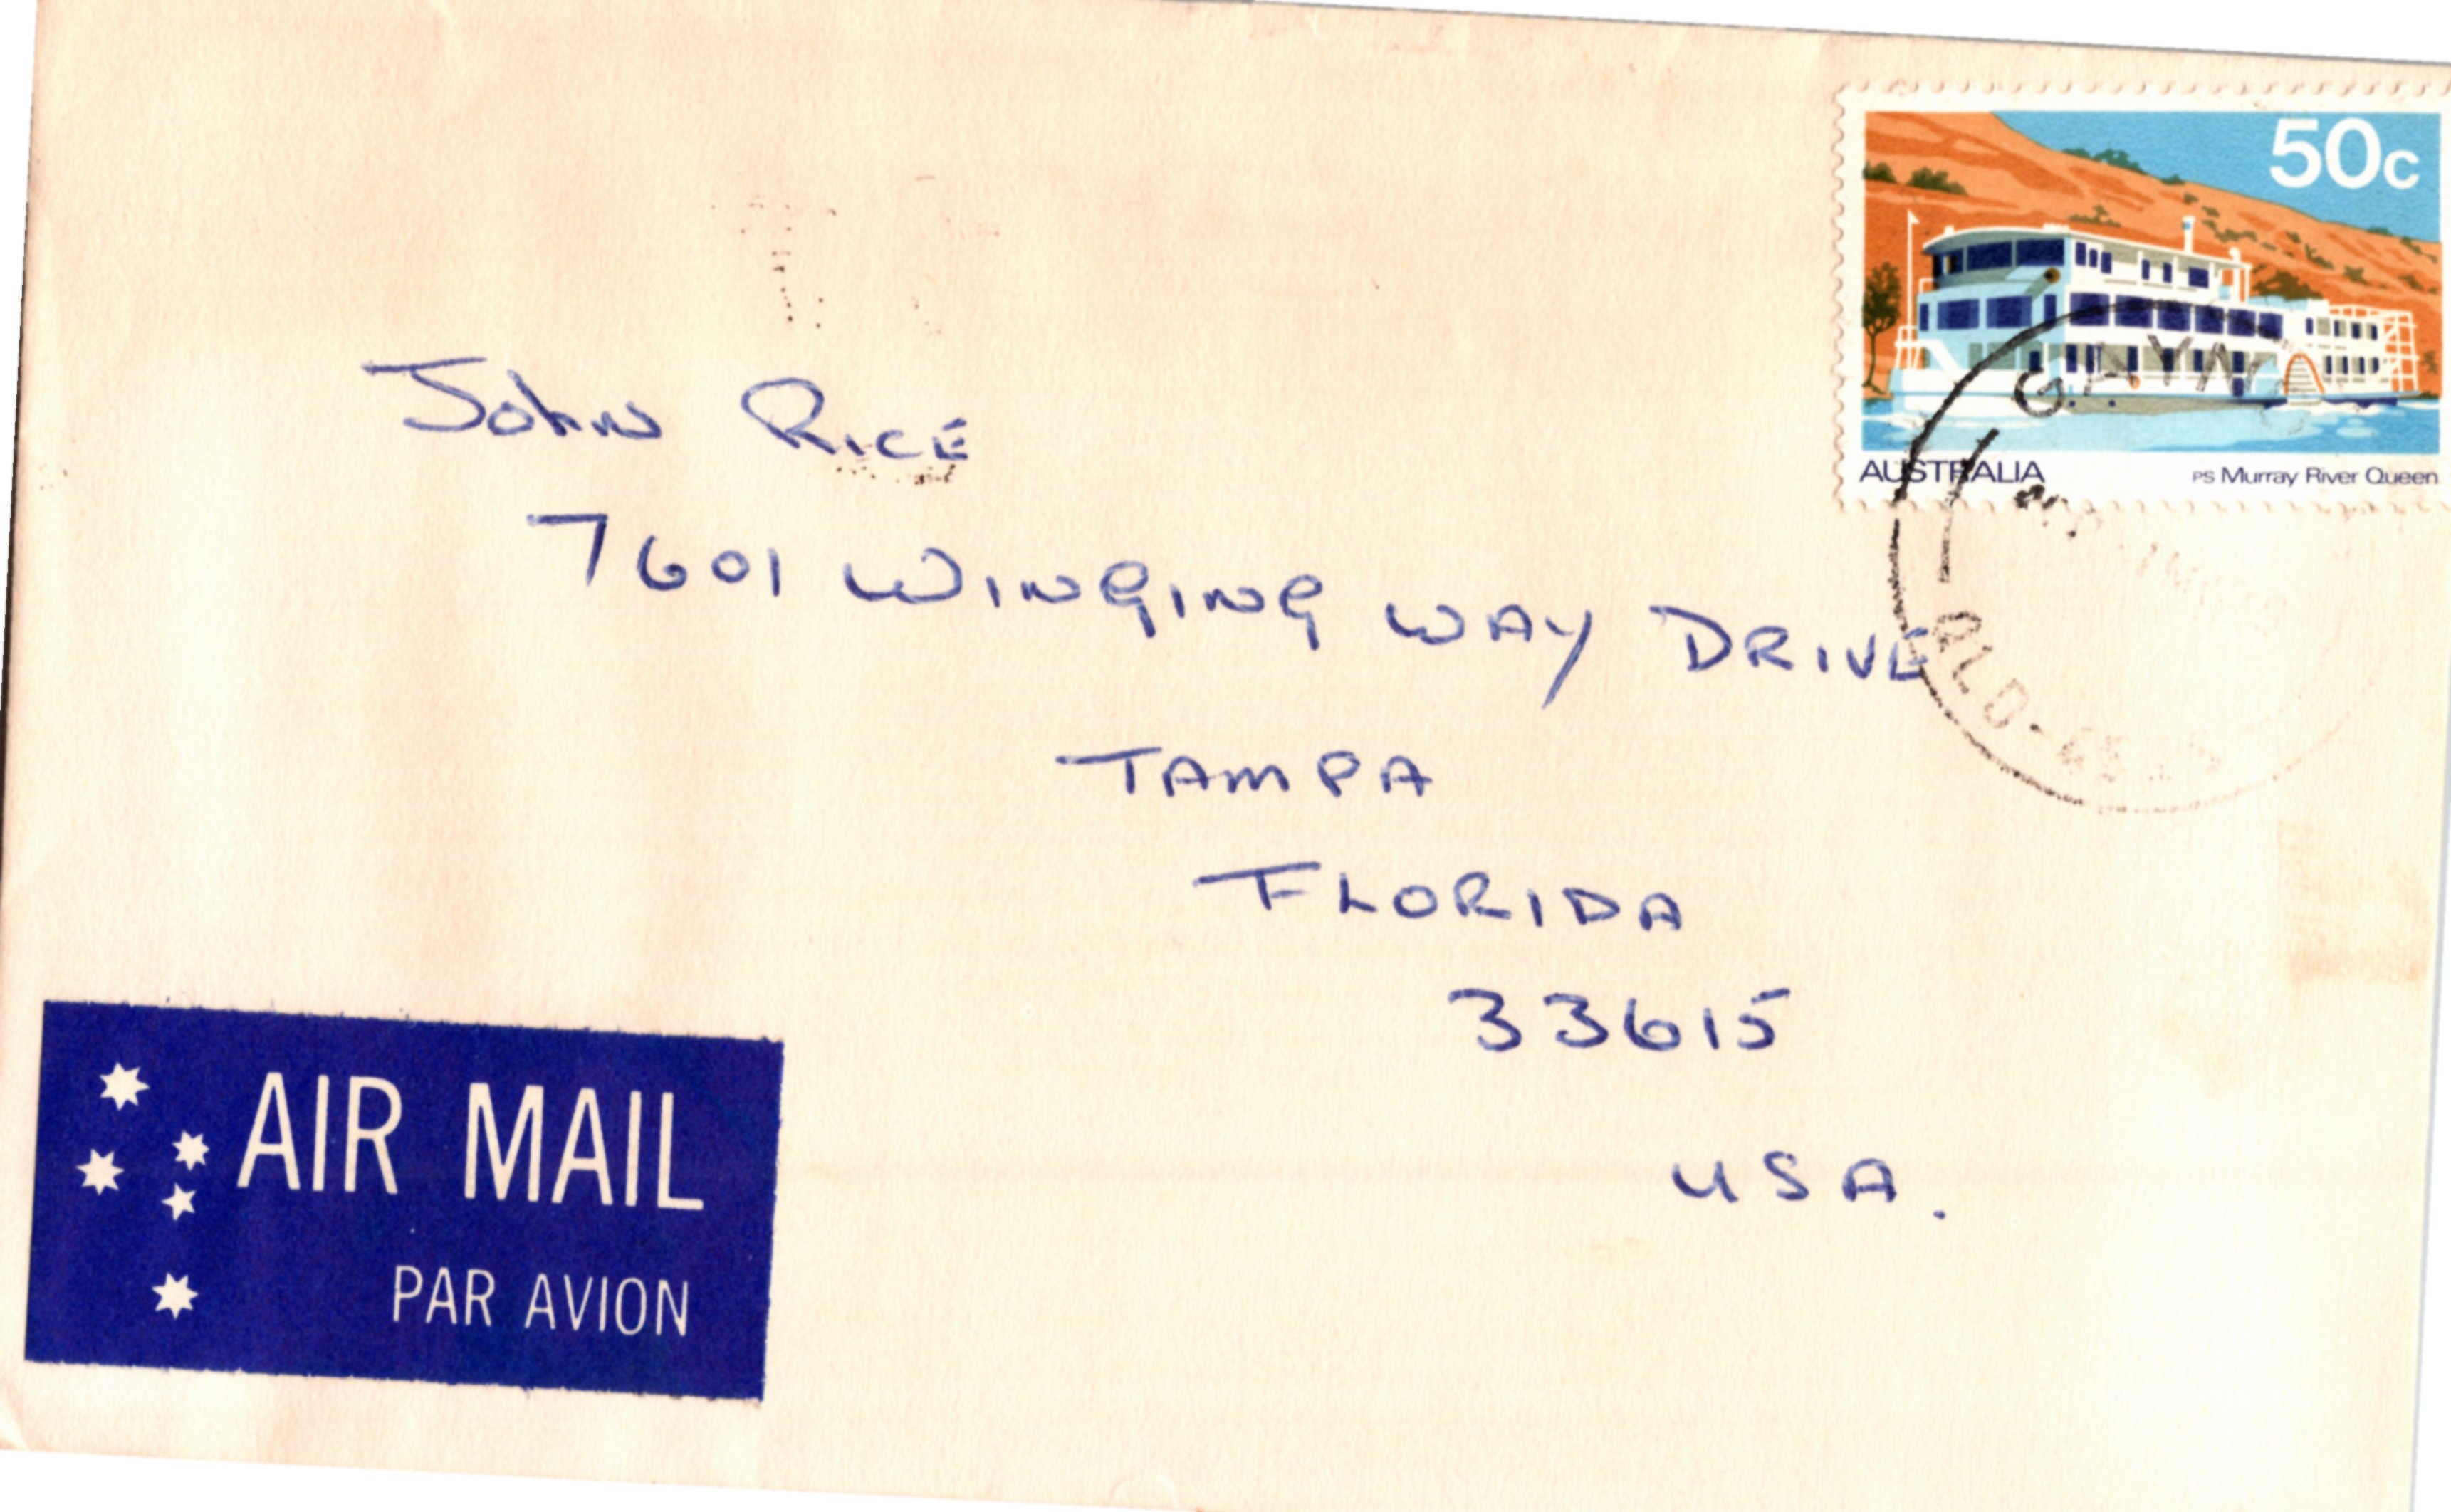 50c
AUSTRALIA PS Murray River Queen
GAYN
QLD-
John RICE
7601 WINGING WAY DRIVE
TAMPA
FLORIDA
33615
USA.
AIR MAIL
PAR AVION